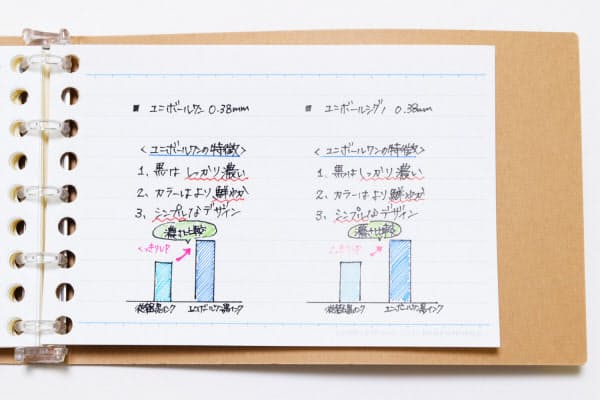 ■ ユニボールワン 0.38mm
<ユニボールワンの特徴>
1、黒はしっかり濃い
2、カラーはより鮮やか
3、シンプルなデザイン
濃さ比較
くっきりUP
従来黒インク ユニボールワン黒インク
■ ユニボールシグノ 0.38mm
<ユニボールワンの特徴>
1、黒はしっかり濃い
2、カラーはより鮮やか
3、シンプルなデザイン
濃さ比較
くっきりUP
従来黒インク ユニボールワン黒インク